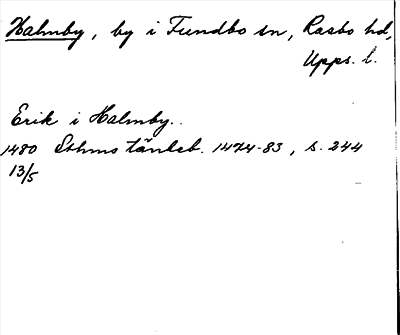 Halmby, by i Funbo sn, Rasbo hd,
Upps. l.
Erik i Halmby.
1480 Sthms tänkeb. 1474-83, s. 244
13/5